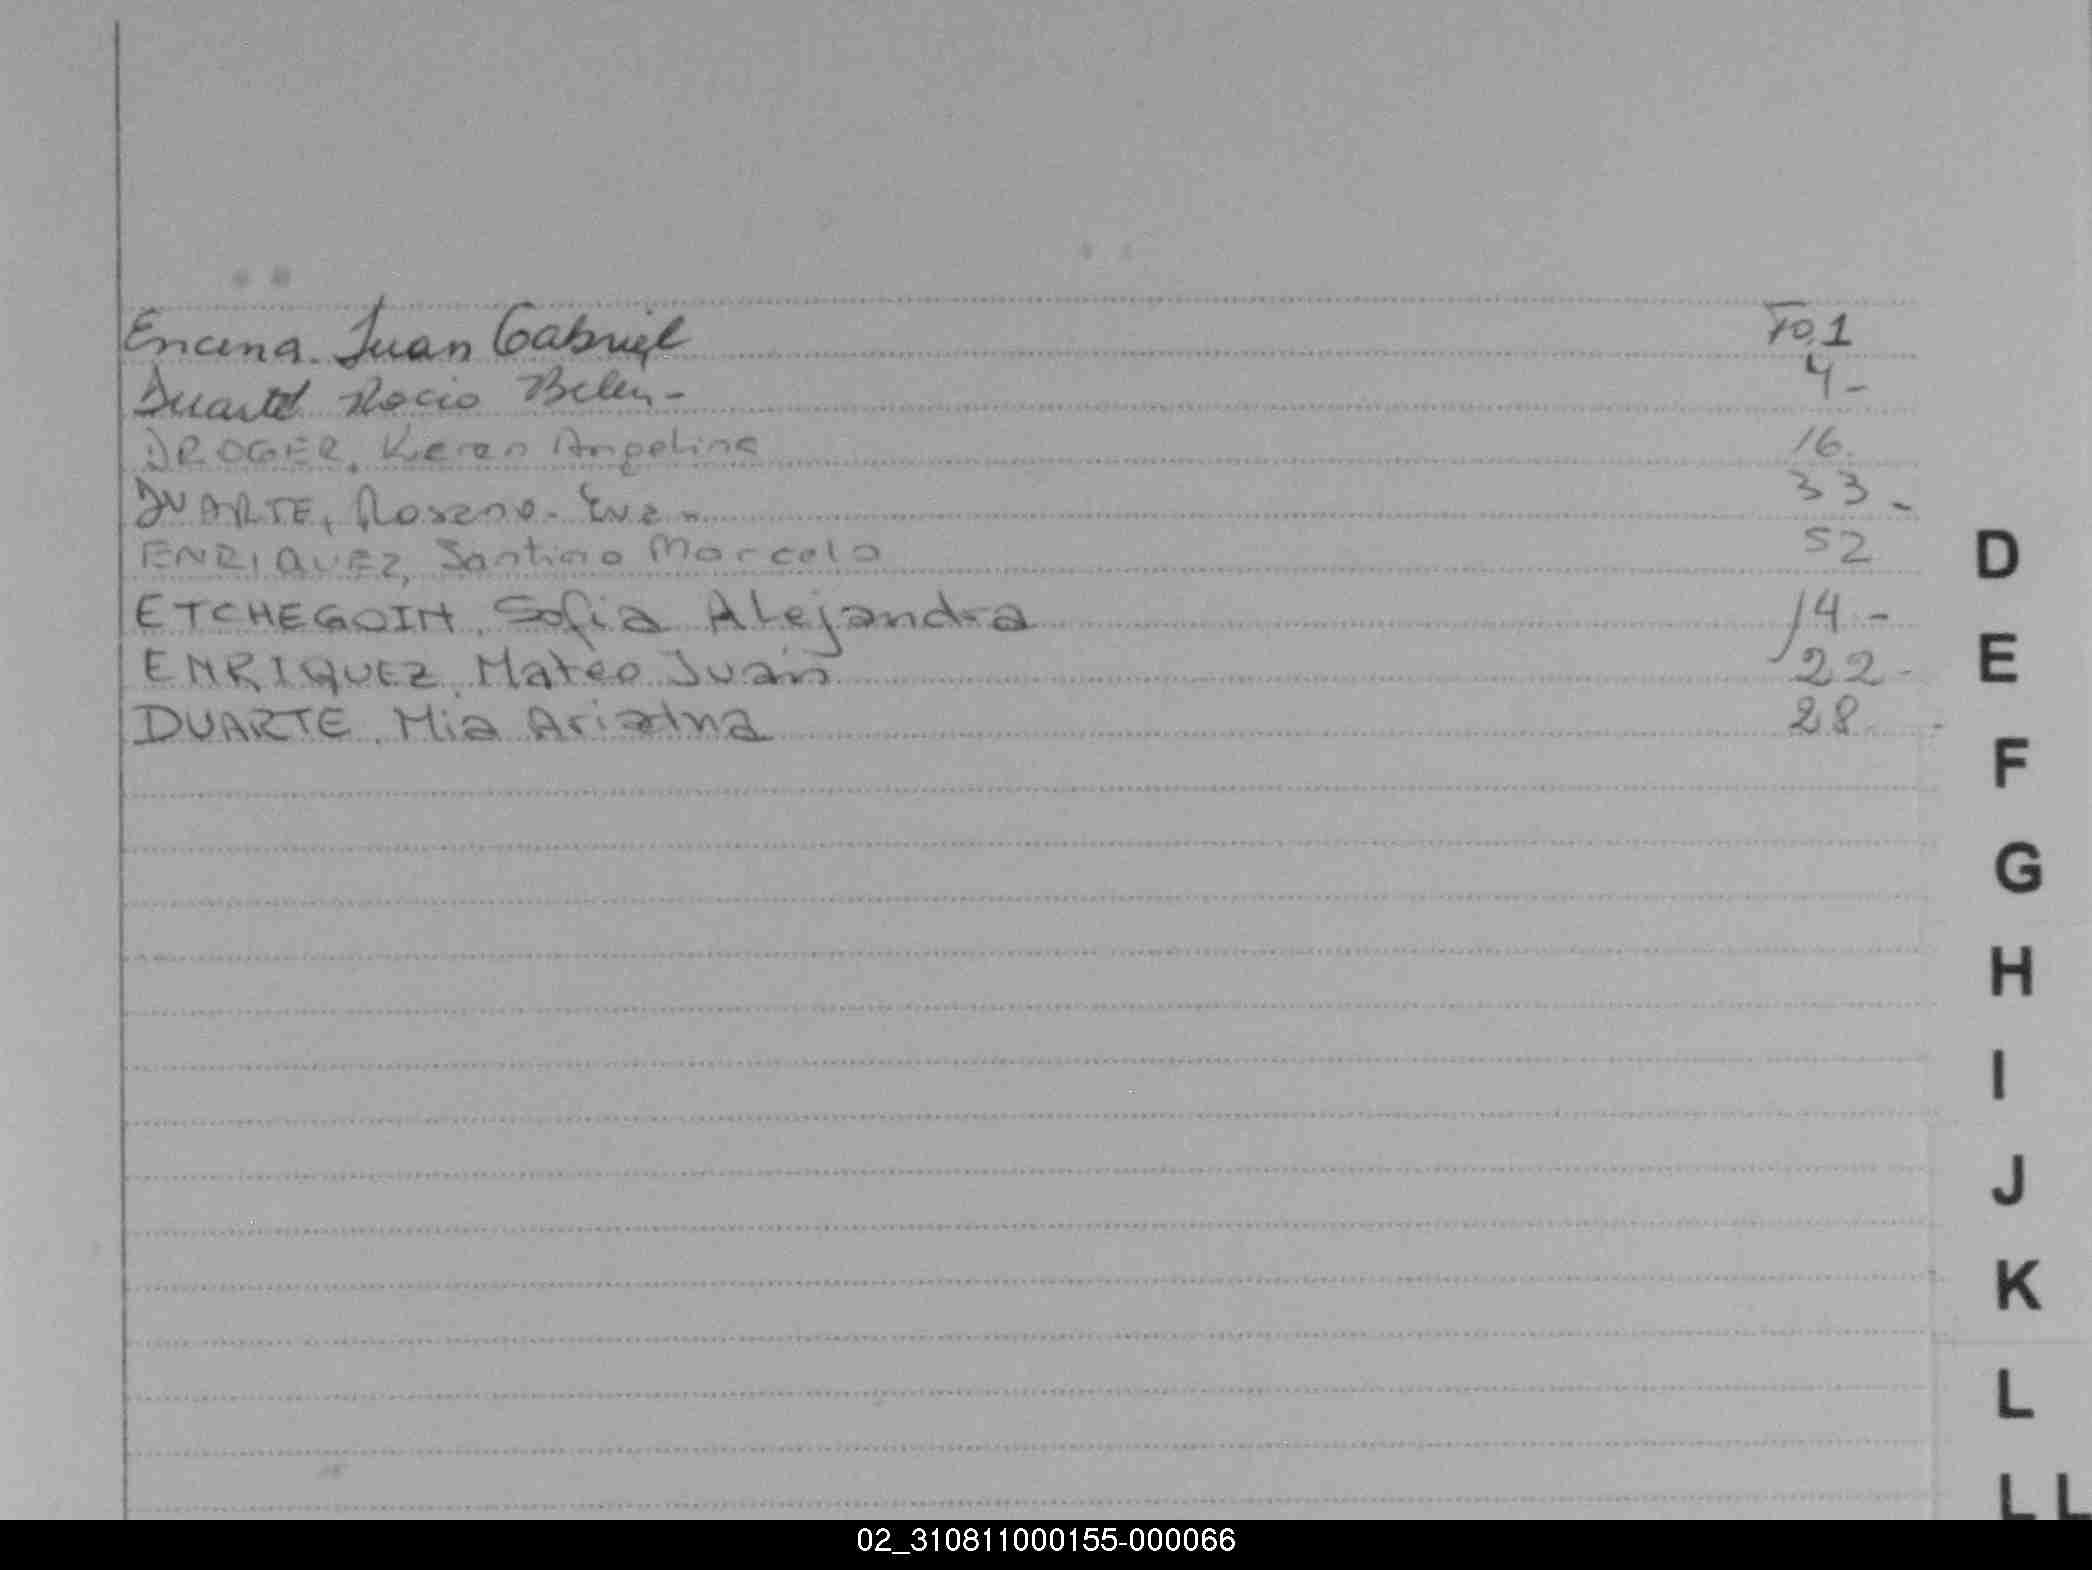 Encina. Juan Gabriel Fo. 1
Duarte Rocio Belen - 4 -
DROGER, Keren Angelina 16.
DUARTE, Roxana Eva - 33 -
ENRIQUEZ, Santino Marcelo 52
ETCHEGOIN, Sofia Alejandra 14 -
ENRIQUEZ, Mateo Juan 22 -
DUARTE, Mia Ariatna 28. -
D
E
F
G
H
I
J
K
L
LL
02_310811000155-000066